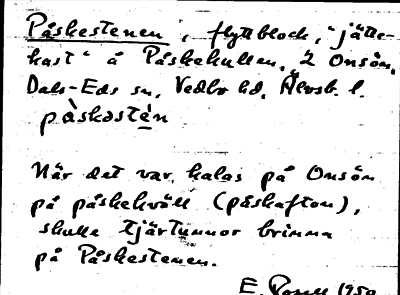 Påskestenen, flyttblock, "jätte-
kast" å Påskekullen, Z Onsön,
Dals-Eds sn, Vedbo hd, Älvsb. l.
pàskəstèn
När det var kalas på Onsön
på påskekväll (påskafton),
skulle tjärtunnor brinna
på Påskestenen.
E. 1950